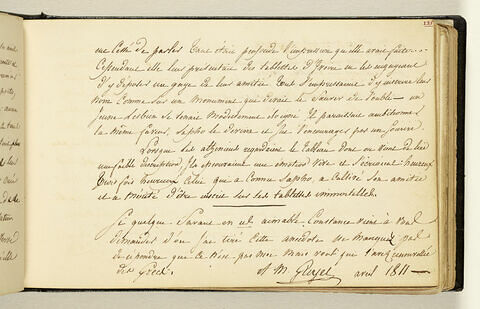 231
une cesse de parler tant était profonde l'impression qu'elle avait faite...
Cependant elle leur présentait des tablettes d'Yvoire en les engageant
d'y déposer un gage de leur amitié tout s'empressaient d'y inscrire leur
nom comme sur un monument qui devait le sauver de l'oubli — un
jeune Lesbien se tenait modestement éloigné Il paraissait ambitionner
la même faveur, Sapho le devine et par l'encourager par un sourire.
Lorsque les
une faible description Ils éprouvaient une émotion vive et s'écriaient: heureux
trois fois heureux celui qui a connu Sapho, a cultivé son amitié
et a mérité d'être inscrit sur ses tablettes immortelles.
Si quelque savant en aimable Constance vient à vous
demander d'où j'ai tiré cette anecdote ne manquez pas
de répondre que ce n'est pas moi mais vous qui l'avez renouvellée
des Grecs.
avril 1811 —